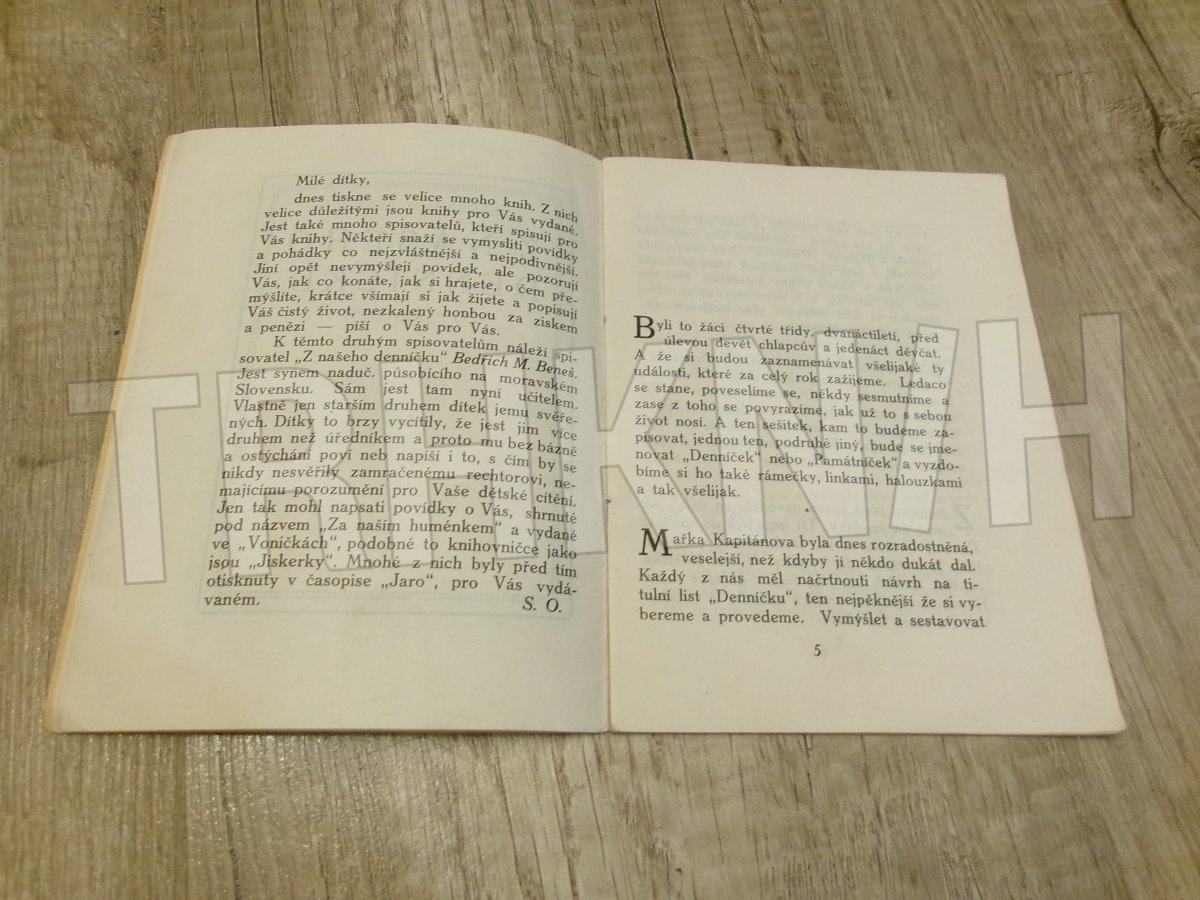 Milé dítky,
dnes tiskne se velice mnoho knih. Z nich
velice důležitými jsou knihy pro Vás vydané.
Jest také mnoho spisovatelů, kteří spisují pro
Vás knihy. Někteří snaží se vymysliti povídky
a pohádky co nejzvláštnější a nejpodivnější.
Jiní opět nevymýšlejí povídek, ale pozorují
Vás, jak co konáte, jak si hrajete, o čem pře-
mýšlíte, krátce všímají si jak žijete a popisují
Váš čistý život, nezkalený honbou za ziskem
a penězi — píší o Vás pro Vás.
K těmto druhým spisovatelům náleží spi-
sovatel „Z našeho denníčku" Bedřich M. Beneš.
Jest synem naduč. působícího na moravském
Slovensku. Sám jest tam nyní učitelem.
Vlastně jen starším druhem dítek jemu svěře-
ných. Dítky to brzy vycítily, že jest jim více
druhem než úředníkem a proto mu bez bázně
a ostýchání poví neb napíší i to, s čím by se
nikdy nesvěřily zamračenému rechtorovi, ne-
majícímu porozumění pro Vaše dětské cítění.
Jen tak mohl napsati povídky o Vás, shrnuté
pod názvem „Za naším huménkem" a vydané
ve „Voničkách", podobné to knihovničce jako
jsou „Jiskerky". Mnohé z nich byly před tím
otisknuty v časopise „Jaro", pro Vás vydá-
vaném. S. O.
Byli to žáci čtvrté třídy, dvanáctiletí, před
úlevou devět chlapcův a jedenáct děvčat.
A že si budou zaznamenávat všelijaké ty
události, které za celý rok zažijeme. Ledaco
se stane, poveselíme se, někdy sesmutníme a
zase z toho se povyrazíme, jak už to s sebou
život nosí. A ten sešitek, kam to budeme za-
pisovat, jednou ten, podruhé jiný, bude se jme-
novat „Denníček" nebo „Památníček" a vyzdo-
bíme si ho také rámečky, linkami, halouzkami
a tak všelijak.
Mařka Kapitánova byla dnes rozradostněná,
veselejší, než kdyby jí někdo dukát dal.
Každý z nás měl načrtnouti návrh na ti-
tulní list „Denníčku", ten nejpěknější že si vy-
bereme a provedeme. Vymýšlet a sestavovat
5
TRHKNIH